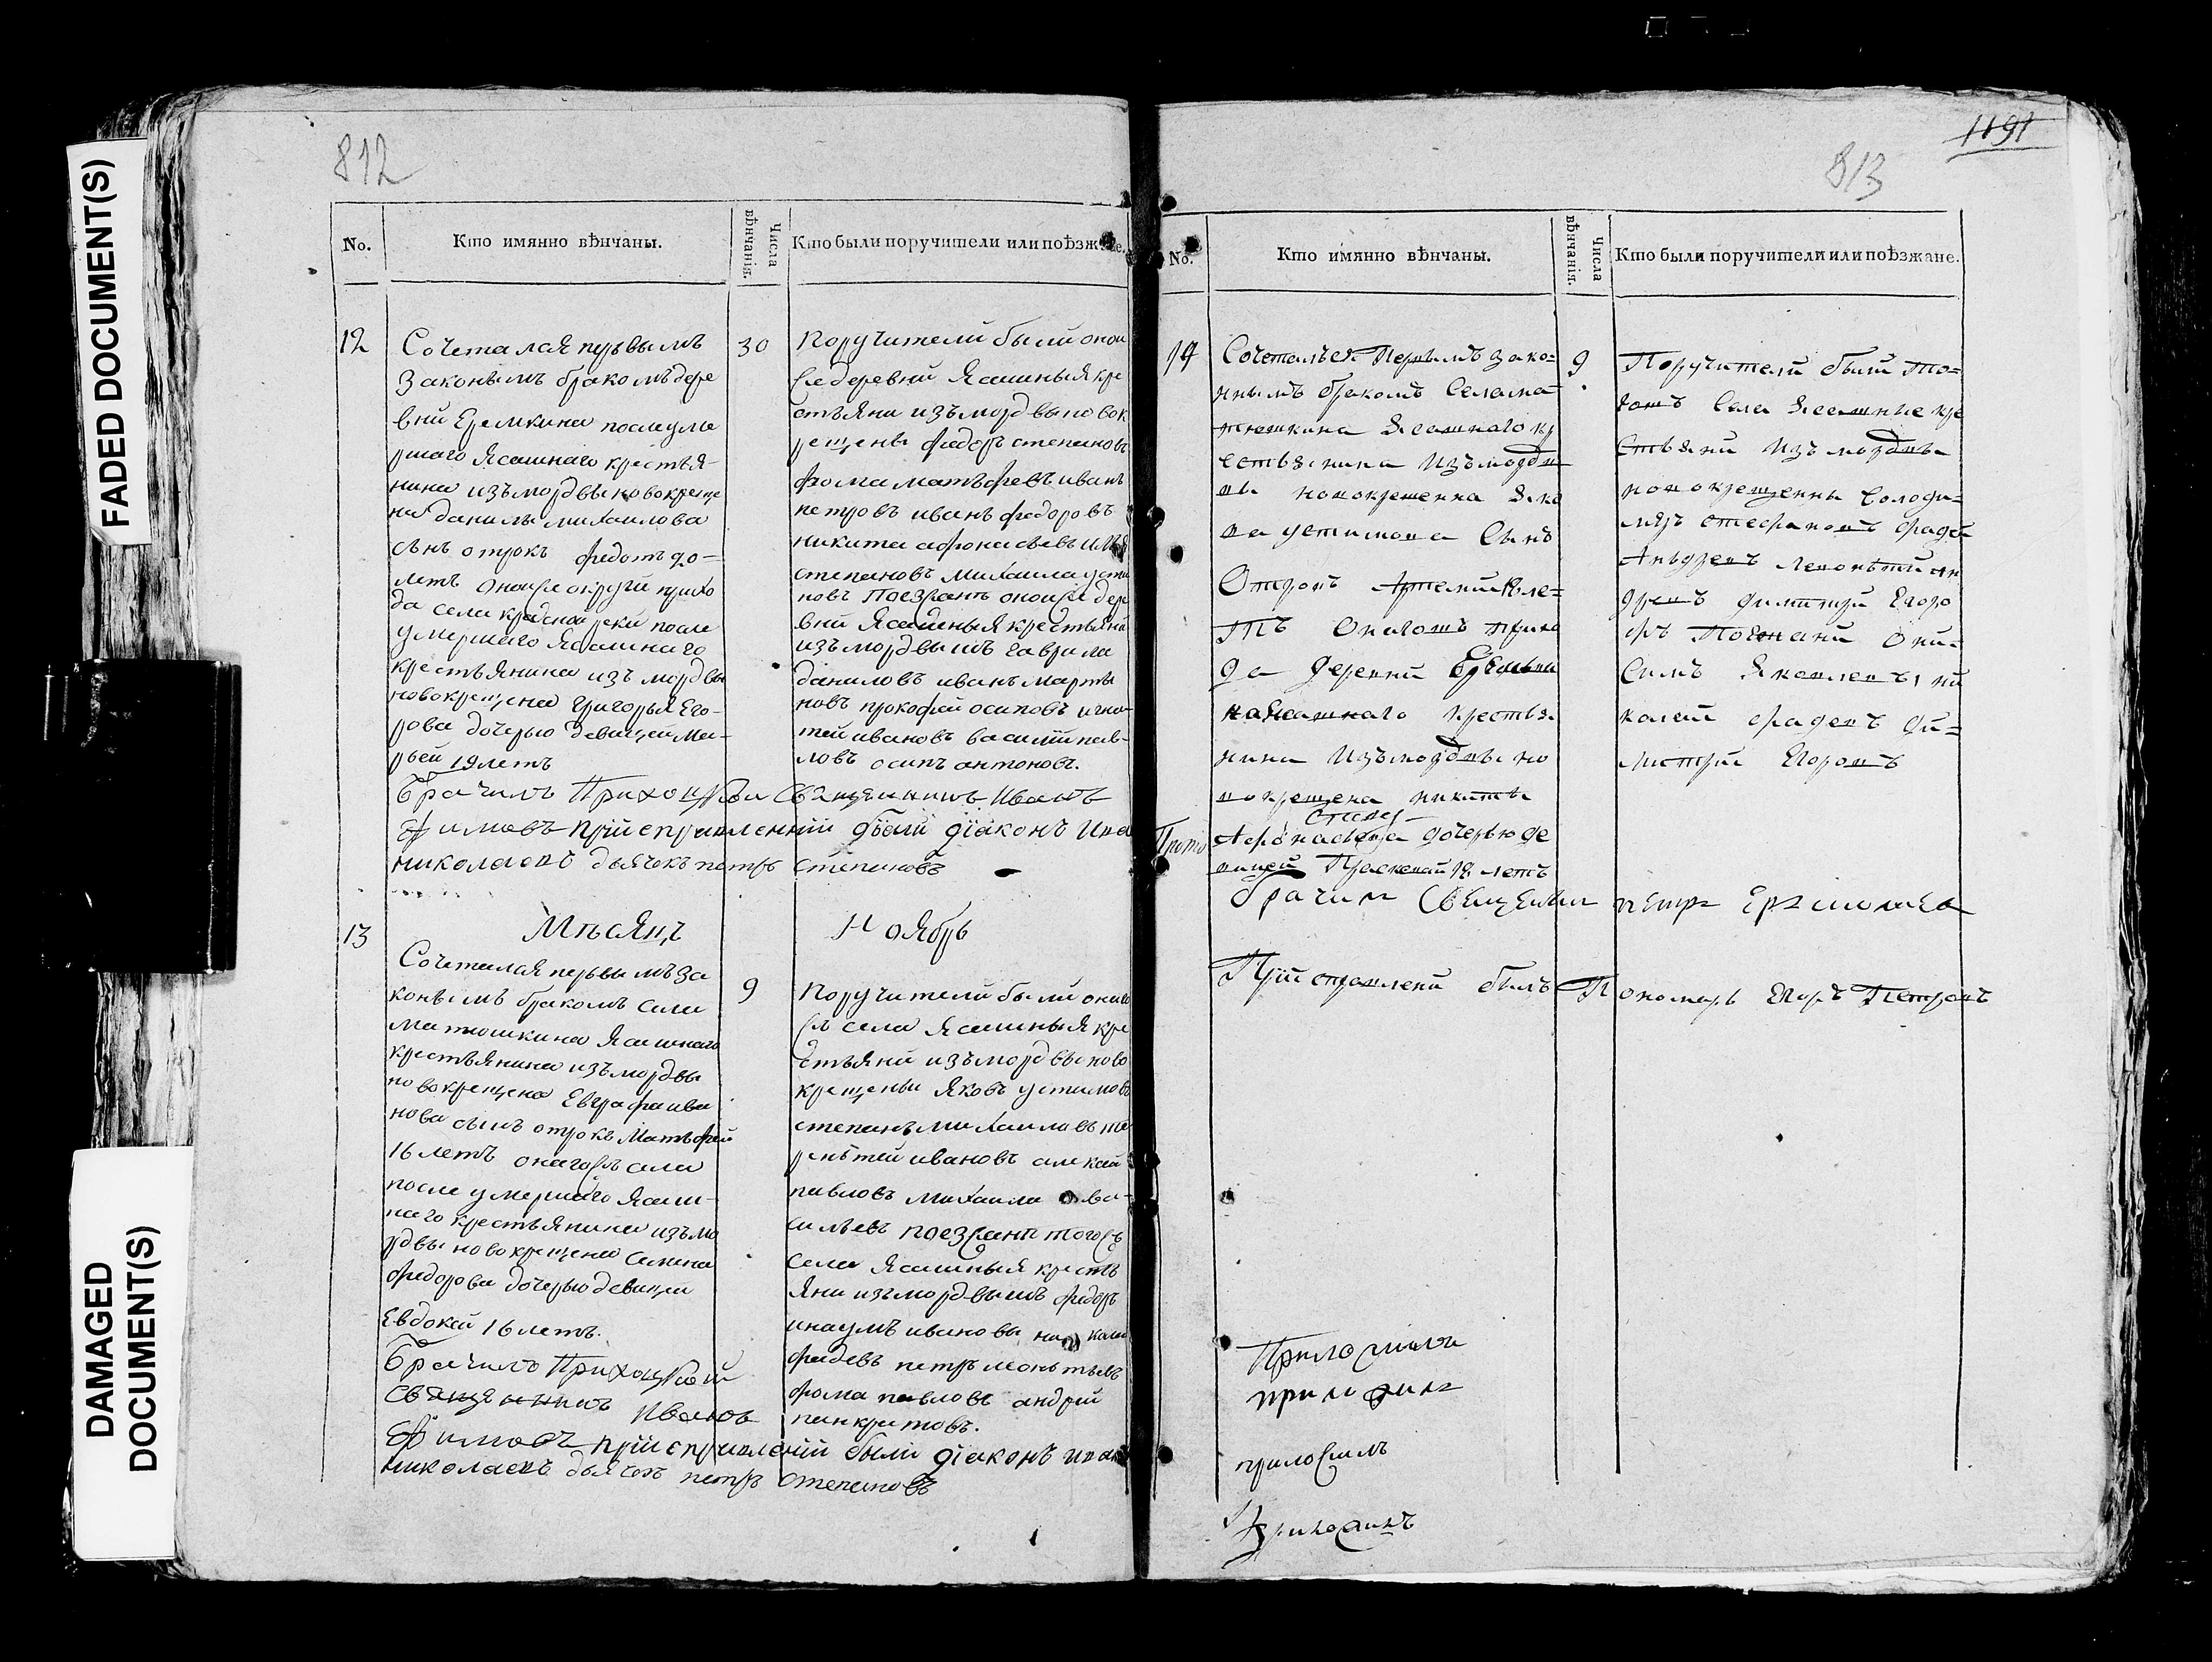 FADED DOCUMENT(S)
DAMAGED
DOCUMENT(S)
812
No.
Кто имянно вѣнчаны.
Числа
вѣнчанія.
Кто были поручители или поѣзжане.
12
Сочеталая первымъ
законымъ бракомъ дере
вни Еремкина послеуме
ршаго Ясашнаго крестья-
нина изъмордвы новокреще
на данилы михаилова
сынъ отрокъ федотъ
летъ оной округи прихо
да села красной реки после
умершаго Ясашнаго
крестьянина изъ мордвы
новокрещена григорья Его-
рова дочерью девицеи Ма-
рьей 19 летъ
30
Поручители были оной
деревни Ясашныя кре
стьяни изъ мордвы новок
рещены федоръ степановъ
фома матьфеевъ иванъ
петровъ иванъ федоровъ
никита афонасьевъ
степановъ Михаила усти
новъ Поезжанъ оной дер
вни Ясашныя крестьяня
изъ мордвы гаврила
даниловъ иванъ марты
новъ прокофий осиповъ игна
тей ивановъ василий пав-
ловъ осипъ антоновъ.
Брачилъ Приходский Священникъ Иванъ
Ефимовъ при исправлении были диаконъ Ива
николаевъ дьячекъ петръ степановъ
13
Мѣсяцъ Ноябрь
Сочеталая первымъ за
конымъ бракомъ села
матюшкина Ясашнаго
крестьянина изъ мордвы
новокрещена Евграфа ива
нова сынъ отрокъ Матьфей
16 летъ онагожъ села
после умершаго Ясаш-
наго крестьянина изъ мо
рдвы новокрещена Семена
федорова дочерью девицеи
Евдокеи 16 летъ.
9
Поручители были онаго
жъ села Ясашныя кре
стьяни изъ мордвы ново
крещены Яковъ устимовъ
степанъ михаиловъ те
рентей ивановъ алексей
павловъ михаила ва-
сильевъ поезжани тогожъ
села Ясашныя кресть
Яни изъ мордвы федоръ
инаумъ ивановы
фадеевъ петръ леонтьевъ
фома павловъ андрей
панкратовъ.
Брачилъ Приходский
священникъ Иванъ
Ефимовъ при исправлении были диаконъ ива
николаевъ дьячекъ петръ степановъ
1191
813
No.
Кто имянно вѣнчаны.
Числа
вѣнчанія.
Кто были поручители или поѣзжане.
14
Сочетался Первымъ зако-
ннымъ бракомъ Села ма
тюшкина Ясашнаго кр
естьянина Изъ мордв
вы новокрещенна Яко
ва устимова Сынъ
Отрокъ Артемий 18 ле-
тъ Онагожъ прихо
да деревни Еремки
на Ясашнаго крестья
нина Изъ мордвы но
вокрещена никиты
Афонасьева дочерью де
вицей Праскевой 18 летъ
9
Поручители были то-
гожъ Села Ясашные кре
стьяни Изъ мордвы
новокрещенны Володи-
миръ стефановъ фадей
Андреевъ леонътий ан
дреевъ димитрий Егоро
въ Поезжани Они-
симъ Яковлевъ ни
колай фадеевъ ди-
митрий Егоровъ
Брачилъ Священникъ петръ Ермолаевъ
При исправлении былъ Пономарь Егоръ Петровъ
Приложилъ
приложилъ
приложилъ
Приложилъ